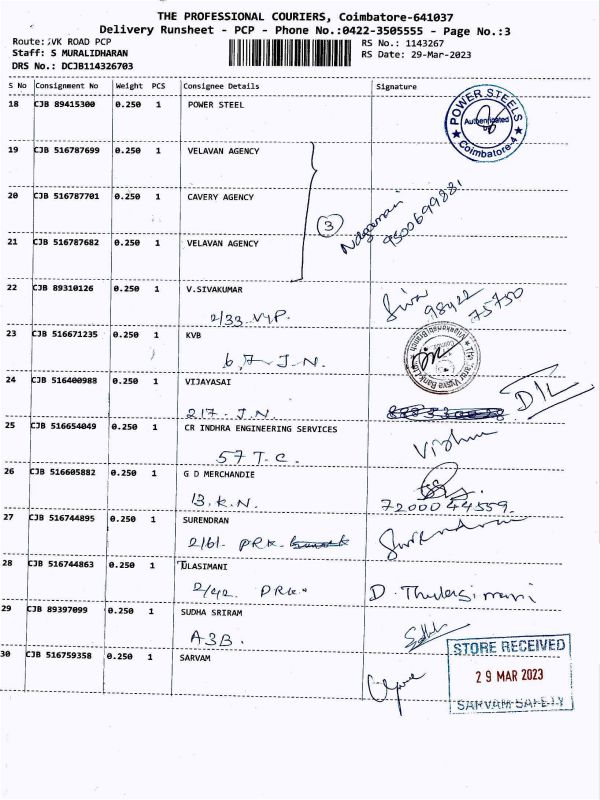 THE PROFESSIONAL COURIERS, Coimbatore-641037
Delivery Runsheet - PCP - Phone No.:0422-3505555 - Page No.:3
Route: VK ROAD PCP
RS No.: 1143267
Staff: S MURALIDHARAN
RS Date: 29-Mar-2023
DRS No.: DCJB114326703
S No Consignment No Weight PCS Consignee Details Signature
18 CJB 89415300 0.250 1 POWER STEEL
POWER STEELS
Authenticated
Coimbatore-4
19 CJB 516787699 0.250 1 VELAVAN AGENCY
20 CJB 516787701 0.250 1 CAVERY AGENCY
3
9500699881
21 CJB 516787682 0.250 1 VELAVAN AGENCY
22 CJB 89310126 0.250 1 V.SIVAKUMAR
2/33 V.P. Siva 98422 75750
23 CJB 516671235 0.250 1 KVB
6,7 J.N.
24 CJB 516400988 0.250 1 VIJAYASAI
217 - J.N
25 CJB 516654049 0.250 1 CR INDHRA ENGINEERING SERVICES
57 T.C. Vishnu
26 CJB 516605882 0.250 1 G D MERCHANDIE
13. K.N. 7200044559.
27 CJB 516744895 0.250 1 SURENDRAN
2/61- PRK Surendran
28 CJB 516744863 0.250 1 TULASIMANI
2/42 PRK. D. Thulasimani
29 CJB 89397099 0.250 1 SUDHA SRIRAM
A3B.
30 CJB 516759358 0.250 1 SARVAM
STORE RECEIVED
29 MAR 2023
SARVAM SAFETY